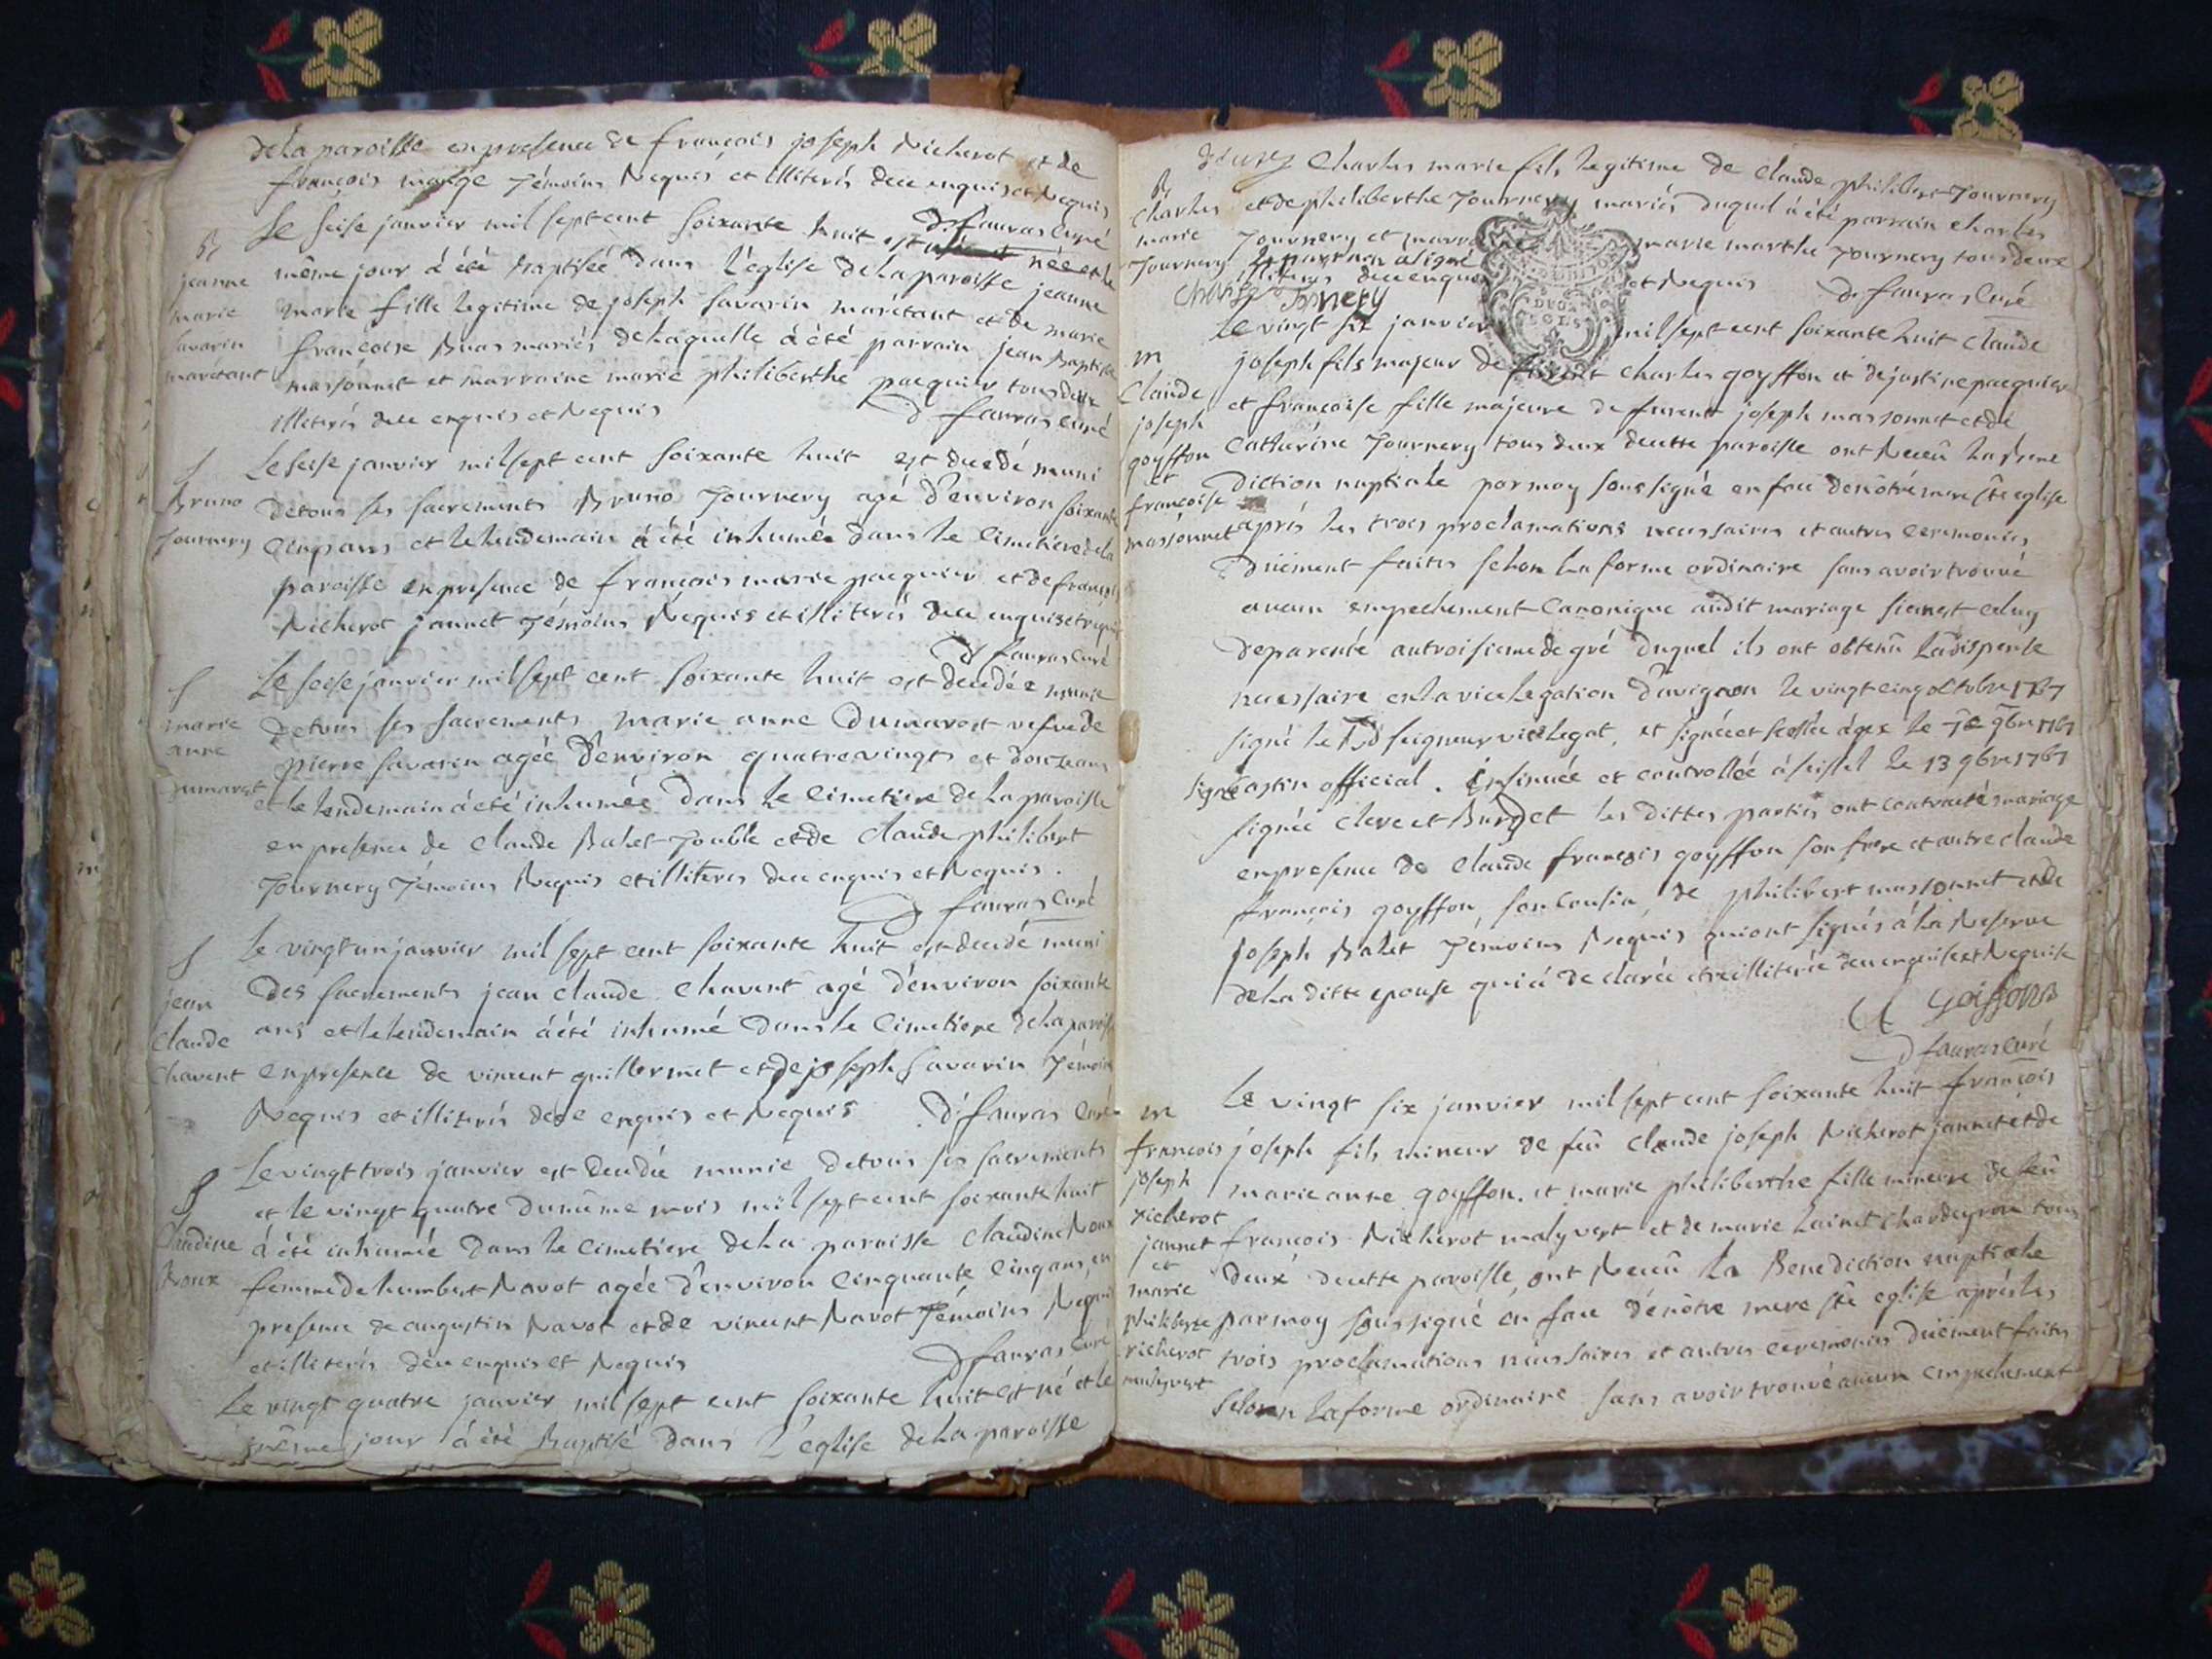 de la paroisse en presence de françois joseph Richerot et de
françois marge témoins Requis et illiterés de ce enquis et Requis
D. fauras Curé
Le seise janvier mil sept cent soixante huit est née et le
B
jeanne
marie
Savarin
maretant
même jour à été baptisée dans l'église de la paroisse jeanne
marie fille legitime de joseph Savarin maretant et de marie
francoise Buas mariés de laquelle à été parrain jean Baptiste
massonnet et marraine marie philiberthe pacquier tous deux
illiterés de ce enquis et Requis D fauras curé
S
Bruno
Tournery
Le seise janvier mil sept cent soixante huit est decedé muni
de tous ses sacrements Bruno Tournery agé d'environ soixante
cinq ans et le lendemain à été inhumée dans le Cimetiere de la
paroisse en presence de francois marie pacquier et de françois
Richerot jannet témoins Requis et illiterés de ce enquis et requis
D fauras curé
S
marie
anne
Dumarest
Le seise janvier mil sept cent soixante huit est decedée munie
de tous ses sacrements marie anne Dumarest vefve de
pierre Savarin agée d'environ quatre vingts et douze ans
et le lendemain à été inhumée dans le Cimetiere de la paroisse
en presence de Claude Balet Touble et de Claude philibert
Tournery Témoins Requis et illiteres de ce enquis et Requis.
D fauras Curé
S
jean
Claude
Chavent
Le vingt un janvier mil sept cent soixante huit est decedé muni
des sacrements jean claude Chavent agé d'environ soixante
ans et le lendemain à été inhumé dans le Cimetiere de la paroisse
en presence de vincent guillermet et de joseph Savarin Témoins
Requis et illiterés de ce enquis et Requis D. fauras Curé
S
Claudine
Roux
Le vingt trois janvier est decedée munie de tous ses sacrements
et le vingt quatre du même mois mil sept cent soixante huit
à été inhumée dans le Cimetiere de la paroisse Claudine Roux
femme de humbert Navot agée d'environ Cinquante Cinq ans, en
presence de augustin Navot et de vincent Navot Témoins Requis
et illiterés de ce enquis et Requis D fauras Curé
Le vingt quatre janvier mil sept cent soixante huit est né et le
même jour à été Baptisé dans L'église de la paroisse
B
Charles
marie
Tournery
Charles marie fils legitime de Claude philibert Tournery
et de philiberthe Tournery mariés duquel à été parrain Charles
Tournery et marraine marie marthe Tournery tous deux
illiteres de ce enquis et Requis D. fauras Curé
le parrain a signé
Charles Tornery
m
Claude
joseph
goyffon
et
francoise
massonnet
Le vingt six janvier mil sept cent soixante huit Claude
joseph fils majeur de Charles goyffon et de justine pacquier
et francoise fille majeure de furent joseph massonnet et de
Catharine Tournery tous deux de cette paroisse ont Receû la Bene
diction nuptiale par moy soussigné en face de nôtre mere ste eglise
aprés les trois proclamations necessaires et autres ceremonies
duëment faites selon la forme ordinaire sans avoir trouvé
aucun empechement Canonique audit mariage si ce n'est celuy
de parenté au troisieme degré duquel ils ont obtenû la dispense
necessaire en la vice legation d'avignon le vingt cinq octobre 1767
signé le seigneur vice legat, et signée et scellée à gex le 9bre 1767
signé castin official. insinuée et controllée à seissel le 13 9bre 1767
signée Clerc et Burdet les dittes parties ont contracté mariage
en presence de Claude françois goyffon son frere et autre claude
françois goyffon son Cousin, de philibert massonnet et de
joseph Balet Témoins Requis qui ont signés à la Reserve
de la ditte epouse qui à declarée etre illiterée de ce enquise et Requise
C goiffonn
D fauras Curé
m
francois
joseph
richerot
jannet
et
marie
philiberte
richerot
malyvert
Le vingt six janvier mil sept cent soixante huit françois
joseph fils mineur de feû Claude joseph Richerot jannet et de
marie anne goyffon. et marie philiberthe fille mineure de feû
francois Richerot malyvert et de marie Chardeyron tous
deux de cette paroisse, ont Receû la Benediction nuptiale
par moy soussigné en face de nôtre mere ste eglise aprés les
trois proclamations necessaires et autres ceremonies duëment faites
selon la forme ordinaire sans avoir trouvé aucun empechement